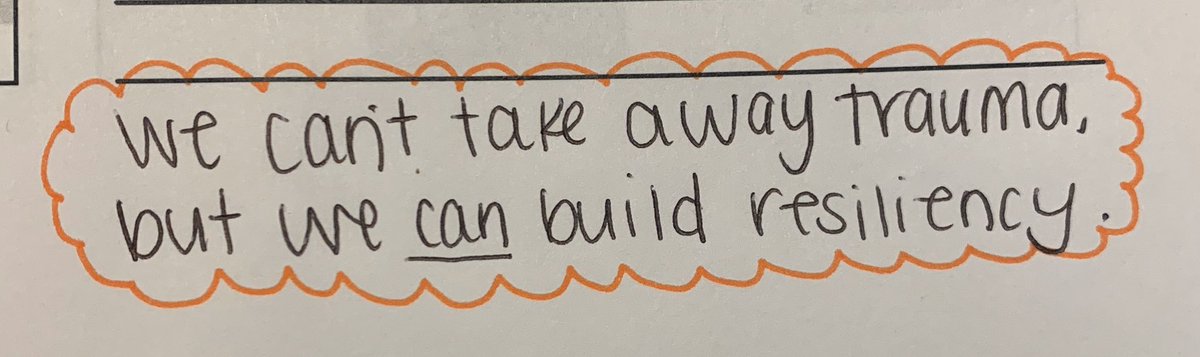 we can't take away trauma,
but we can build resiliency.